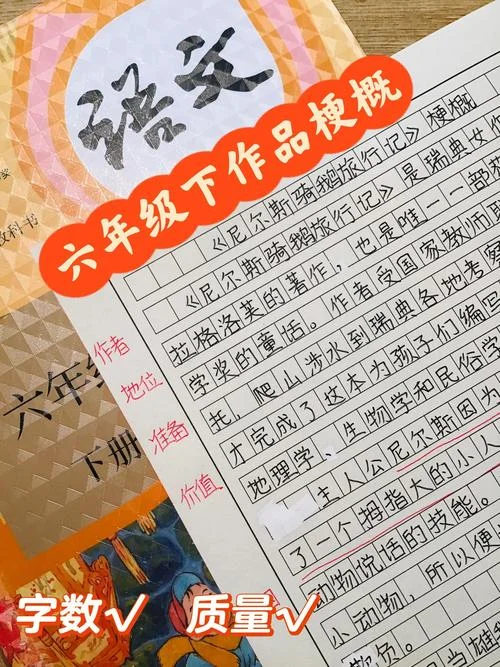 语文
教科书
六年级下作品梗概
《尼尔斯骑鹅旅行记》梗概
《尼尔斯骑鹅旅行记》是瑞典女作
拉格洛芙的著作,也是唯一一部
学奖的童话。作者受国家教师
托,爬山涉水到瑞典各地考察
才完成了这本为孩子们编写
地理学、生物学和民俗学
主人公尼尔斯因为
了一个拇指大的小人
动物说话的技能。
小动物,所以便
负。
作者
地位
准备
价值
六年级
下册
字数√ 质量√